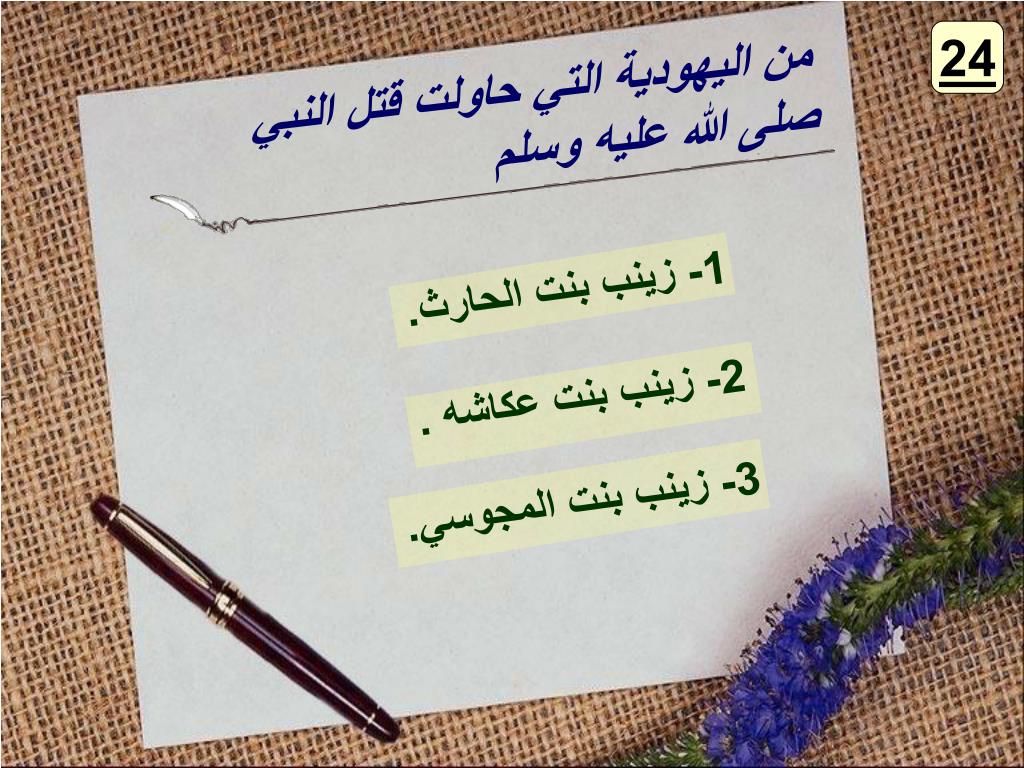 24
من اليهودية التي حاولت قتل النبي
صلى الله عليه وسلم
1- زينب بنت الحارث.
2- زينب بنت عكاشه .
3- زينب بنت المجوسي.